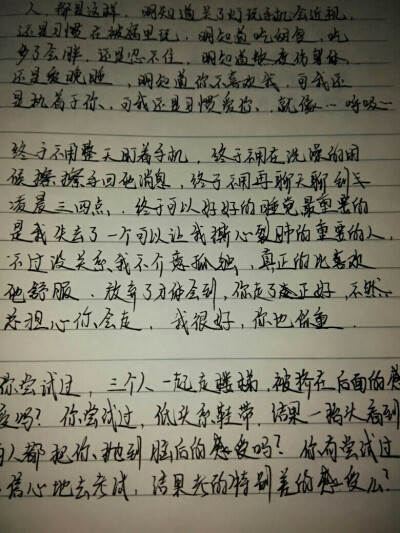 人都是这样，明知道关了灯玩手机会近视，
还是习惯在被窝里玩，明知道吃胡食，吃
多了会胖，还是忍不住，明知道熬夜伤身体
还是爱晚睡，明知道你不喜欢我，可我还
是执着于你、可我还是习惯爱你，就像…呼吸…
终于不用整天盯着手机，终于不用在洗澡的时
候擦擦手回他消息，终于不用再聊天聊到
凌晨三四点，终于可以好好的睡觉最重要的
是我失去了一个可以让我撕心裂肺的重要的人，
不过没关系、我不介意孤独，真正的比喜欢
他舒服．放弃了才体会到，你走了正好，不然
总担心你会走，我很好，你也保重．
你尝试过，三个人一起走楼梯，被挤在后面的感
受吗？你尝试过，低头系鞋带，结果一抬头看到
人都把你抛到脑后的感受吗？你有尝试过
信心地去考试，结果考的特别差的感受么？